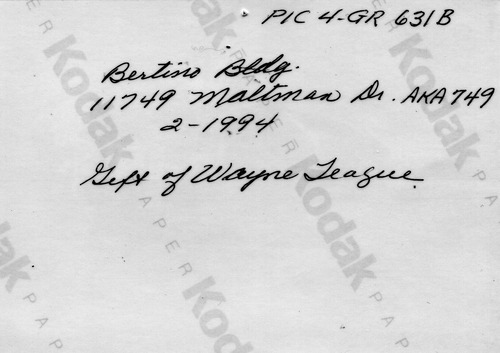 PIC 4-GR 631B
Bertino Bldg.
11749 Maltman Dr. AKA 749
2-1994
Gift of Wayne League
Kodak
PAPER
Kodak
PAPER
Kodak
PAPER
Kodak
PAPER
Kodak
PAPER
Kodak